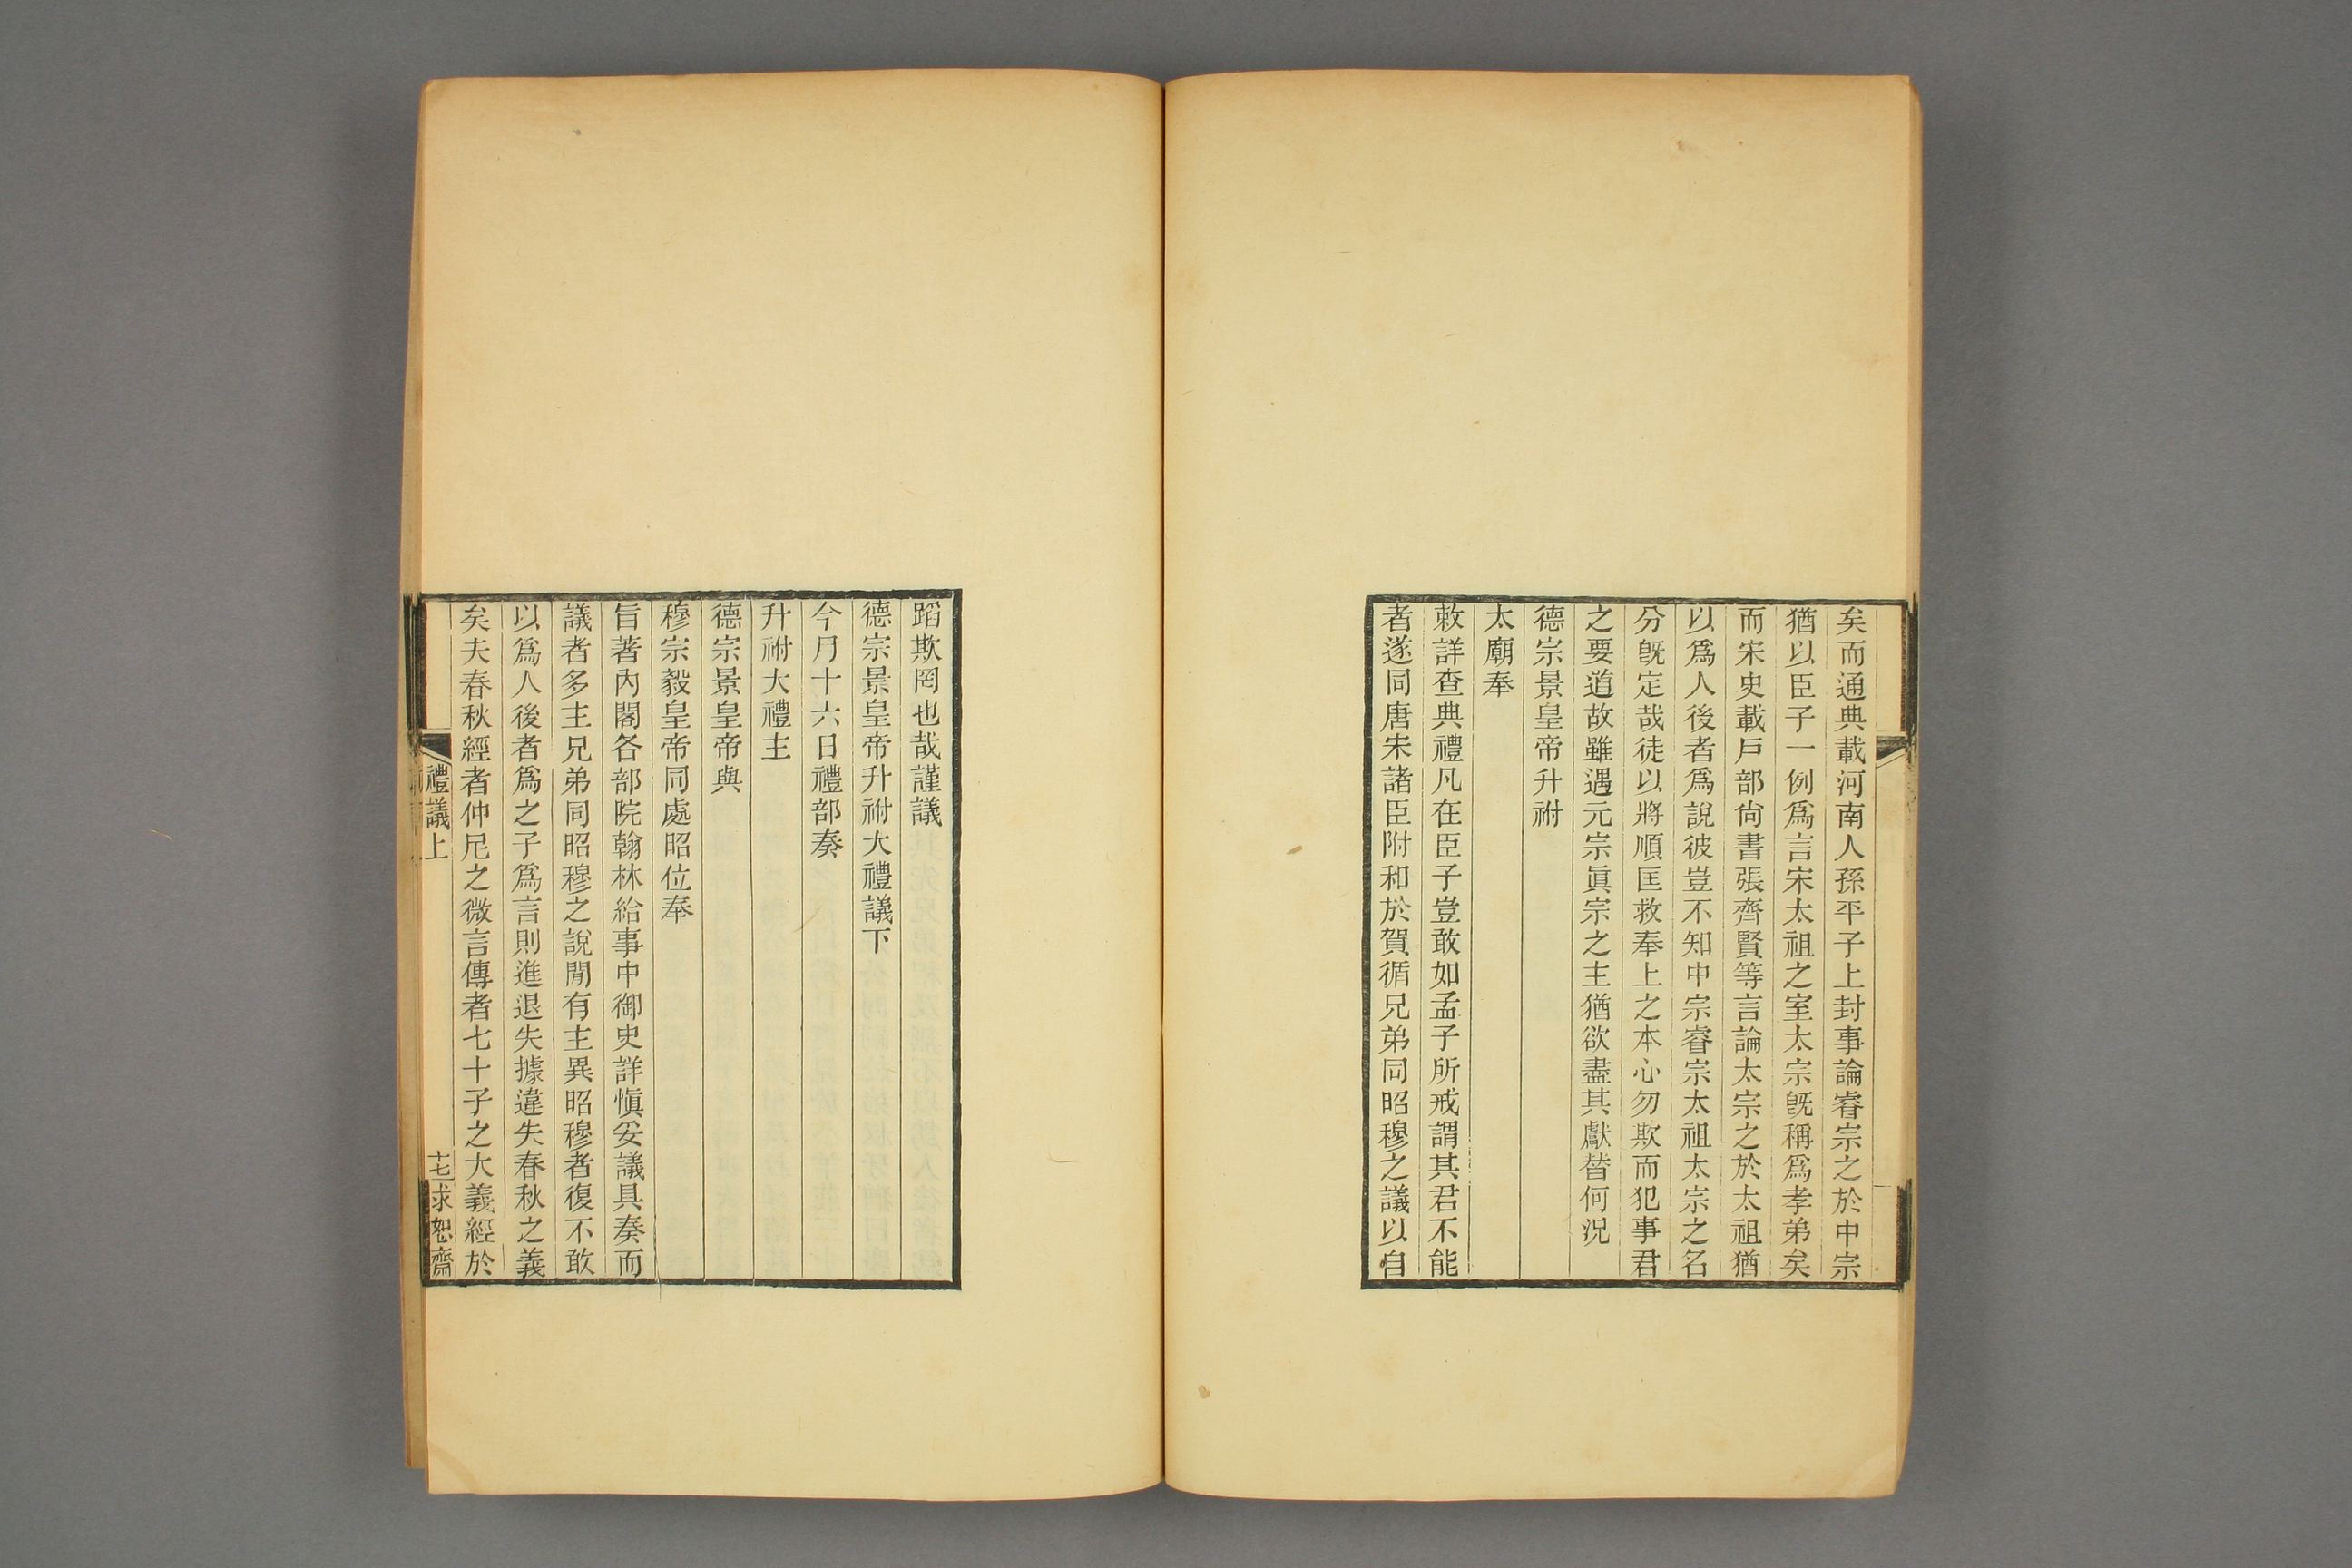 矣而通典載河南人孫平子上封事論睿宗之於中宗
猶以臣子一例爲言宋太祖之室太宗旣稱爲孝弟矣
而宋史載戶部尙書張齊賢等言論太宗之於太祖猶
以爲人後者爲說彼豈不知中宗睿宗太祖太宗之名
分旣定哉徒以將順匡救奉上之本心勿欺而犯事君
之要道故雖遇元宗眞宗之主猶欲盡其獻替何況
德宗景皇帝升祔
太廟奉
敕詳查典禮凡在臣子豈敢如孟子所戒謂其君不能
者遂同唐宋諸臣附和於賀循兄弟同昭穆之議以自
蹈欺罔也哉謹議
德宗景皇帝升祔大禮議下
今月十六日禮部奏
升祔大禮主
德宗景皇帝與
穆宗毅皇帝同處昭位奉
旨著內閣各部院翰林給事中御史詳愼妥議具奏而
議者多主兄弟同昭穆之說閒有主異昭穆者復不敢
以爲人後者爲之子爲言則進退失據違失春秋之義
矣夫春秋經者仲尼之微言傳者七十子之大義經於
禮議上
十七
求恕齋